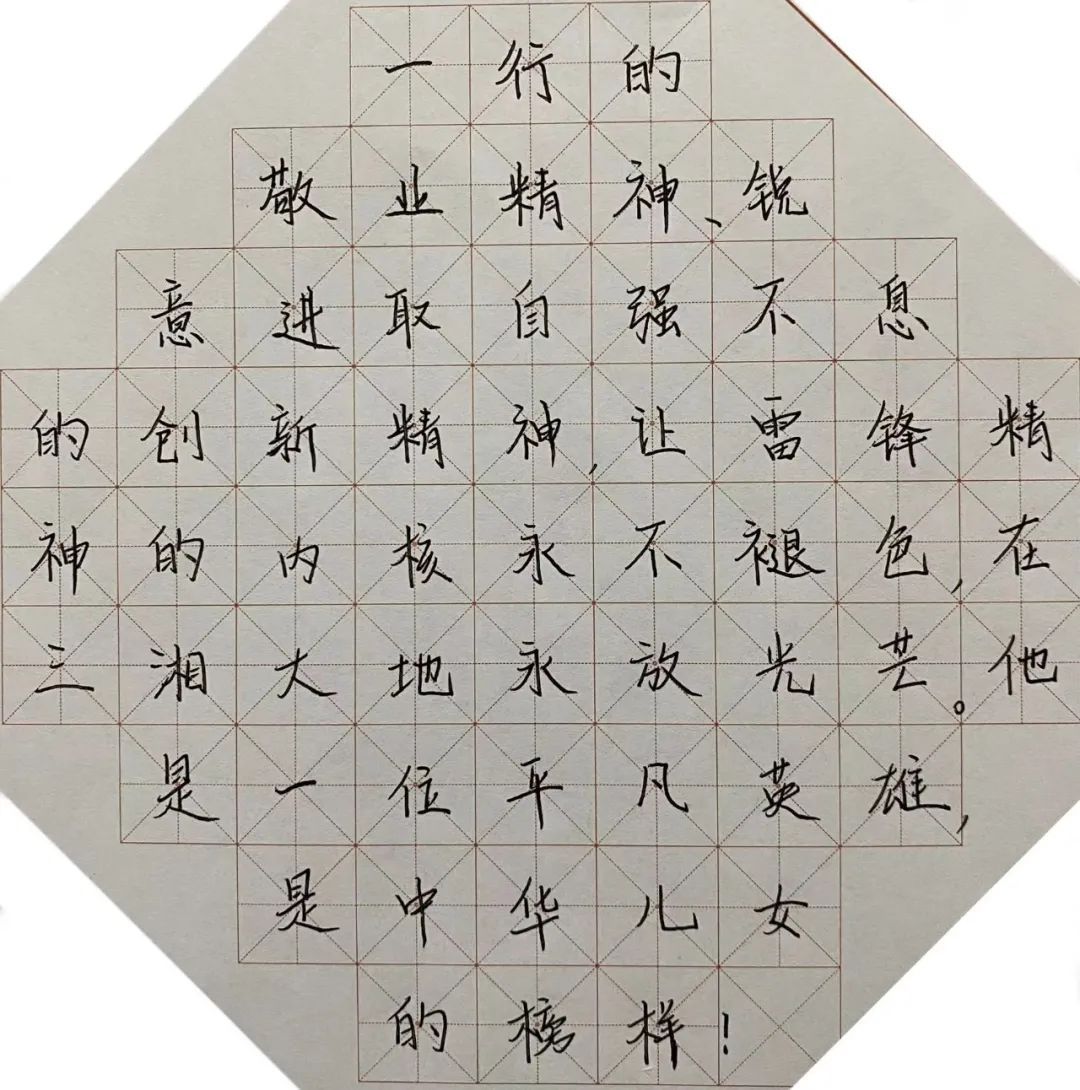 一行的
敬业精神、锐
意进取自强不息
的创新精神,让雷锋精
神的内核永不褪色,在
三湘大地永放光芒。他
是一位平凡英雄,
是中华儿女
的榜样!